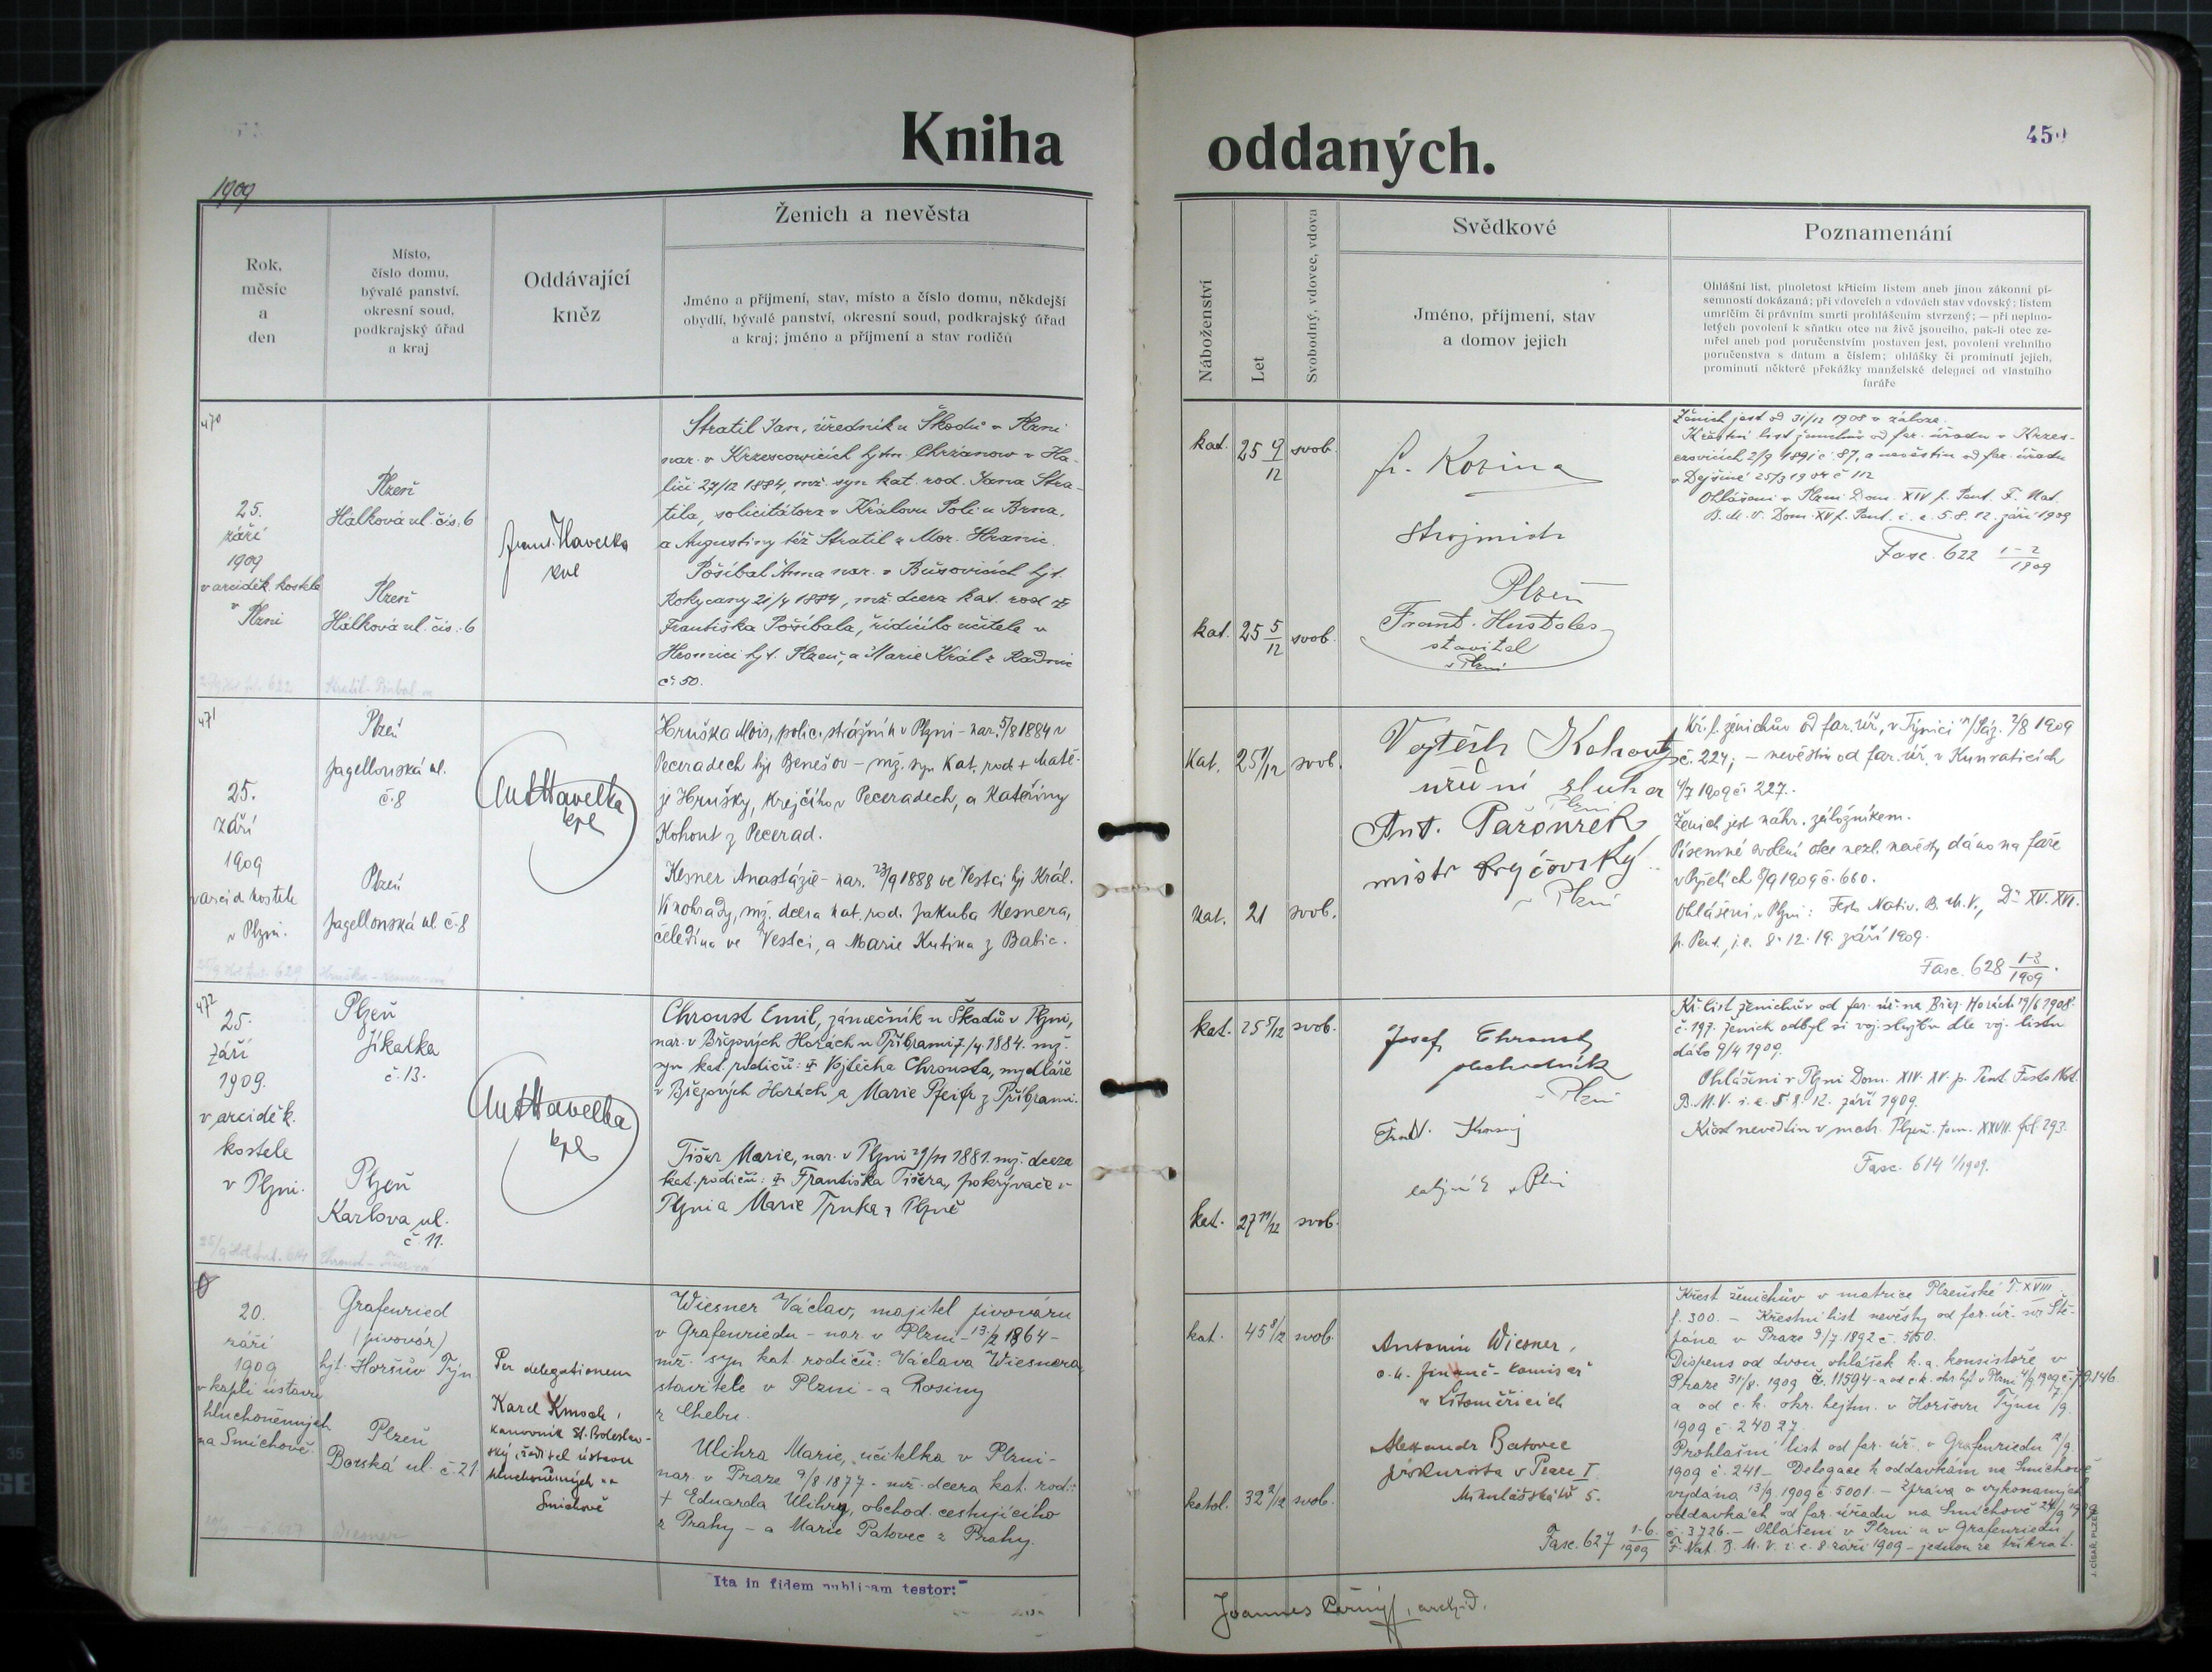 Kniha
oddaných.
1909
Rok,
měsíc
a
den
Místo,
číslo domu,
bývalé panství,
okresní soud,
podkrajský úřad
a kraj
Oddávající
kněz
Ženich a nevěsta
Jméno a příjmení, stav, místo a číslo domu, někdejší
obydlí, bývalé panství, okresní soud, podkrajský úřad
a kraj; jméno a příjmení a stav rodičů
Náboženství
Let
Svobodný, vdovec, vdova
Svědkové
Jméno, příjmení, stav
a domov jejich
Poznamenání
Ohlášní list, plnoletost křticím listem aneb jinou zákonní pí-
semností dokázaná; při vdovcích a vdovách stav vdovský; listem
umrlčím či právním smrti prohlášením stvrzený; — při neplno-
letých povolení k sňatku otce na živě jsoucího, pak-li otec ze-
mřel aneb pod poručenstvím postaven jest, povolení vrchního
poručenstva s datum a číslem; ohlášky či prominutí jejich,
prominutí některé překážky manželské delegací od vlastního
faráře
470
25.
září
1909
v arciděk. kostele
v
Plzni
Plzeň
Hálková ul. čís. 6
Plzeň
Hálková ul. čís. 6
Frant. Havelka
kpl
Stratil Jan, úředník u Škodů v Plzni
nar. v Krzescowicích hjtm. Chrzanow v Ha-
liči 27/12 1884, mž. syn kat. rod. Jana Stra-
tila, solicitátora v Královu Poli u Brna,
a Augustiny též Stratil z Mor. Hranic.
Pošíbal Anna nar. v Bušovicích hjt.
Rokycany 21/4 1884, mž. dcera kat. rod.
Františka Pošíbala, řídícího učitele v
Hromici hjt. Plzeň, a Marie Král z Radnic
č. 50.
kat. 25 9/12 svob.
kat. 25 5/12 svob.
fr. Kozina
strojmistr
Plzeň
Frant. Hustoles
stavitel
v Plzni
Ženich jest od 31/12 1908 v záloze.
Křestní list ženichův od far. úřadu v Krzes-
zovicích 2/9 1891 č. 87, a nevěstin od far. úřadu
v Dejšině 25/3 1904 č 112
Ohlášeni v Plzni Dom. XIV p. Pent. F. Nat.
B. M. V. Dom. XV p. Pent. i. e. 5. 8. 12. září 1909
Fasc. 622 1-2/1909
471
25.
září
1909
v arcid. kostele
v Plzni.
Plzeň
Jagellonská ul.
č. 8
Plzeň
Jagellonská ul č. 8
Ant Havelka
kpl
Hruška Alois, polic. strážník v Plzni – nar. 5/8 1884 v
Peceradech hjt Benešov – mž. syn kat. rod. + Matě-
je Hrušky, krejčího v Peceradech, a Kateřiny
Kohout z Pecerad.
Kesner Anastázie – nar. 23/9 1888 ve Vestci hjt Král.
Vinohrady, mž. dcera kat. rod. Jakuba Kesnera,
čeledína ve Vestci, a Marie Kutina z Babic.
Kat. 25 1/12 svob.
Kat. 21 svob.
Vojtěch Kohout
úřední sluha
Plzni
Ant. Paroürek
mistr krejčovský
v Plzni
Kř. l. ženichův od far. úř. v Týnici n/Sáz. 2/8 1909
č. 224; – nevěstin od far. úř. v Kunraticích
4/7 1909 č. 227.
Ženich jest náhr. záložníkem.
Písemné svolení otce nezl. nevěsty dáno na faře
Ohlášeni v Plzni: Festo Nativ. B. M. V., D. XV. XVI.
p. Pent., i. e. 8. 12. 19. září 1909.
Fasc. 628 1-3/1909.
472
25.
září
1909.
v arciděk.
kostele
v Plzni.
Plzeň
Jikalka
č. 13.
Plzeň
Karlova ul.
č. 11.
Ant Havelka
kpl
Chroust Emil, zámečník u Škodů v Plzni,
nar. v Březových Horách u Příbrami 7/4. 1884. mž.
syn kat. rodičů: Vojtěcha Chrousta, mydláře
v Březových Horách a Marie Pfeifr z Příbrami.
Tišer Marie, nar. v Plzni 29/11 1881. mž. dcera
kat. rodičů: Františka Tišera, pokrývače v
Plzni a Marie Trnka z Plzně
kat. 25 5/12 svob.
kat. 27 11/12 svob.
Josef Chroust
obchodník
v Plzni
v Plzni
Kř. list ženichův od far. úř. na Břez. Horách 19/6 1908.
č. 197. ženich odbyl si voj. službu dle voj. listu
dáto 9/4 1909.
Ohlášeni v Plzni Dom. XIV. XV. p. Pent. Festo Nat.
B. M. V. i. e. 5. 8. 12. září 1909.
Křest nevěstin v matr. Plzeň. tom. XXVII. fol. 293.
Fasc. 614 1/1909.
20.
září
1909
v kapli ústavu
hluchoněmých
na Smíchově.
Grafenried
(pivovár)
hjt. Horšův Týn.
Plzeň
Borská ul. č. 21
Per delegationem
Karel Kmoch,
kanovník St. Boleslav-
ský, ředitel ústavu
hluchoněmých na
Smíchově
Wiesner Václav, majitel pivováru
v Grafenriedu – nar. v Plzni – 13/2 1864 –
mž. syn kat. rodičů: Václava Wiesnera,
stavitele v Plzni – a Rosiny
z Chebu.
Ulihra Marie, učitelka v Plzni –
nar. v Praze 9/8 1877 – mž. dcera kat. rod.:
+ Eduarda Ulihry, obchod. cestujícího
z Prahy – a Marie Patovec z Prahy.
kat. 45 8/12 svob.
katol. 32 2/12 svob.
Antonín Wiesner,
c. k. finanč. komisař
v Litoměřicích
Alexandr Batovec
prokurista v Praze I
Mikulášská tř 5.
Fasc. 627 1-6./1909
Křest ženichův v matrice Plzeňské T. XVIII
f. 300. – Křestní list nevěsty od far. úř. sv. Ště-
pána v Praze 9/7. 1892 č. 550.
Dispens od dvou ohlášek k. a. konsistoře v
Praze 31/8. 1909 č. 11594 – a od c. k. okr. hjt v Plzni 4/9 1909 č. 79.146
a od c. k. okr. hejtm. v Horšovu Týnu 7/9.
1909 č. 24027.
Prohlašní list od far. úř. v Grafenriedu
1909 č. 241 – Delegace k oddavkám na Smíchově
vydána 13/9. 1909 č. 5001. – Zpráva o vykonaných
oddavkách od far. úřadu na Smíchově 24/9 1909
č. 3726. – Ohlášeni v Plzni a v Grafenriedu
F. Nat. B. M. V. i. e. 8. září 1909 – jednou za třikrát.
Ita in fidem publicam testor:
Joannes Černý, archid.
J. CÍSAŘ, PLZEŇ